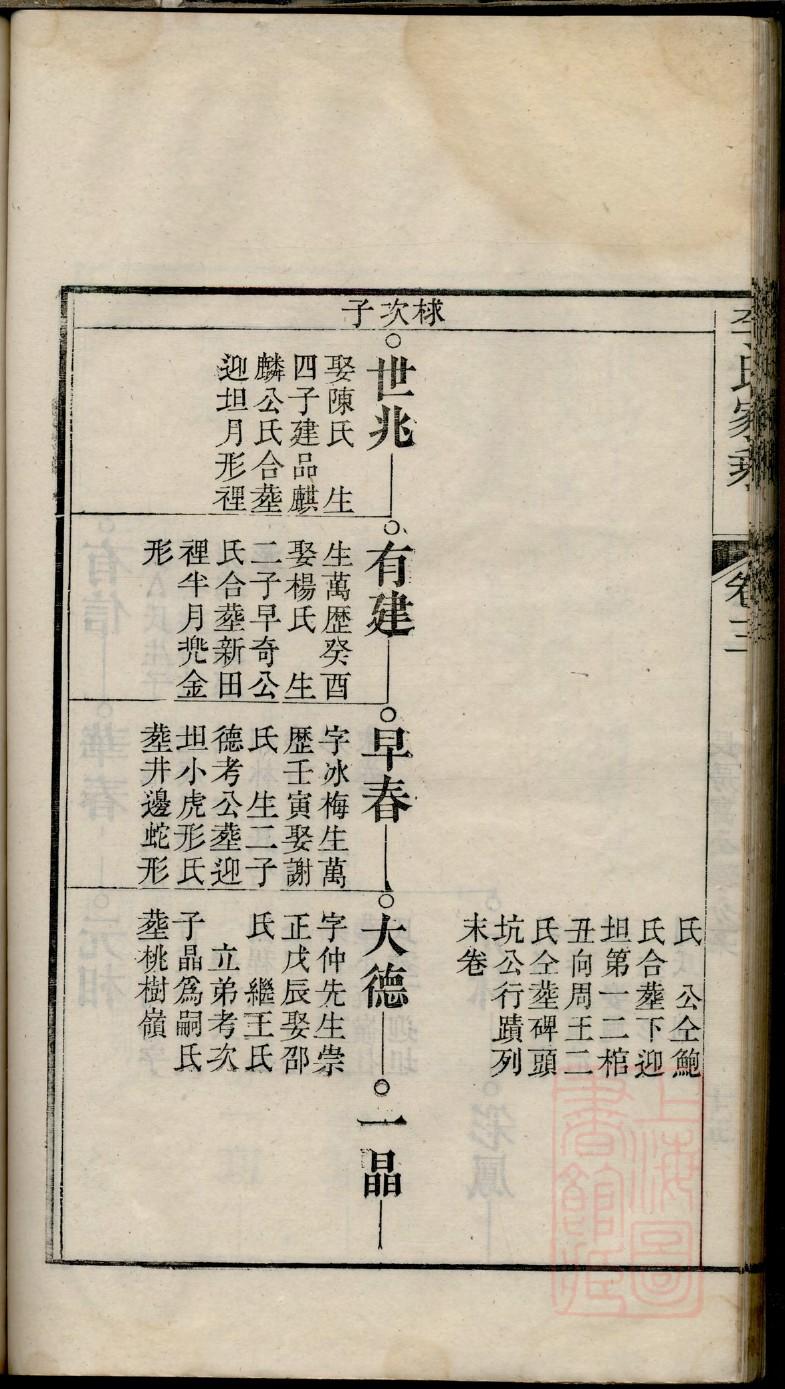 李氏家乘
卷三
氏　公仝鮑
氏合𦵏下迎
坦第一二棺
丑向周王二
氏仝𦵏碑頭
坑公行蹟列
末卷
球次子
世兆
娶陳氏　生
四子建品麒
麟公氏合𦵏
迎坦月形裡
有建
生萬歴癸酉
娶楊氏　生
二子早奇公
氏合𦵏新田
裡半月兠金
形
早春
字冰梅生萬
歴壬寅娶謝
氏　生二子
德考公𦵏迎
坦小虎形氏
𦵏井邊蛇形
大德
字仲先生崇
正戊辰娶邵
氏　繼王氏
立弟考次
子晶爲嗣氏
𦵏桃樹嶺
一晶
上海圖
書館藏